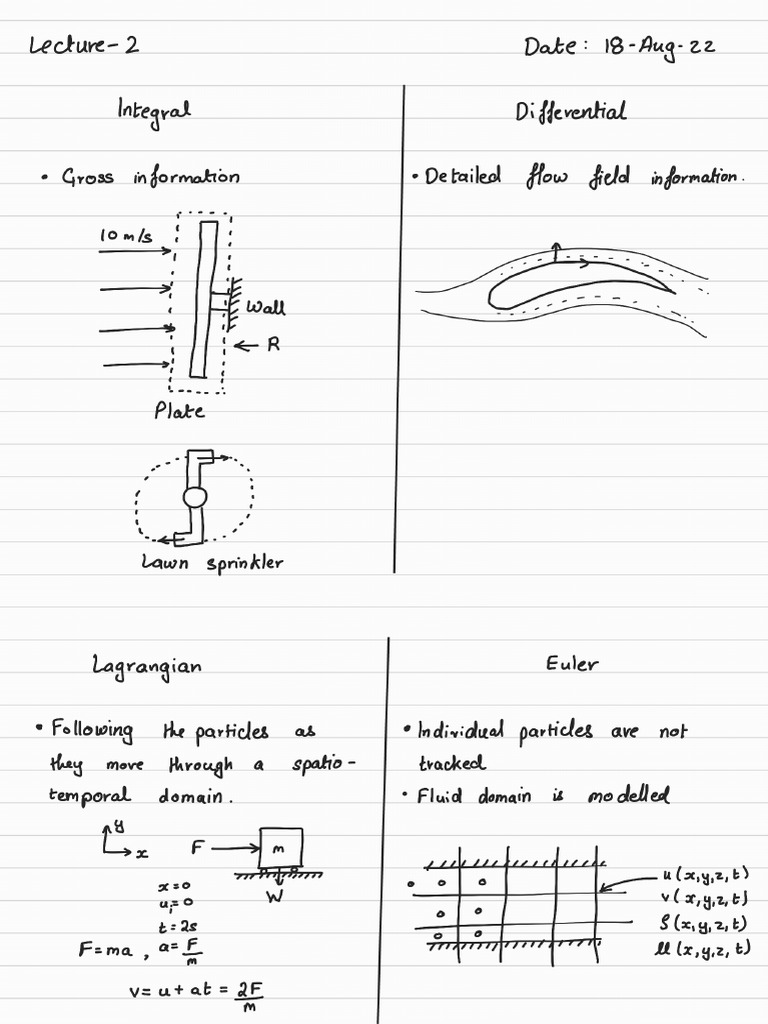 Lecture-2
Date: 18-Aug-22
Integral
• Gross information
10 m/s
Wall
R
Plate
Lawn sprinkler
Differential
• Detailed flow field information.
Lagrangian
• Following the particles as
they move through a spatio-
temporal domain.
y
x
F
m
W
x=0
uᵢ=0
t=2s
F=ma, a=F/m
v= u+at = 2F/m
Euler
• Individual particles are not
tracked
• Fluid domain is modelled
u(x,y,z,t)
v(x,y,z,t)
ρ(x,y,z,t)
μ(x,y,z,t)